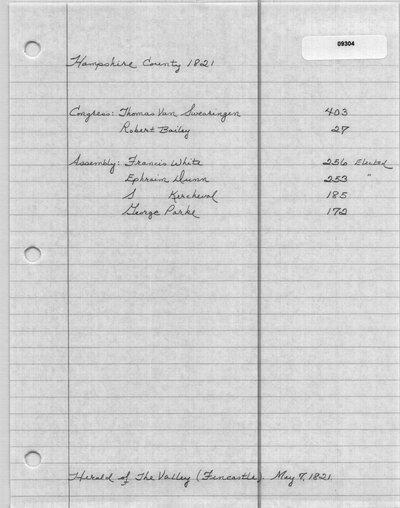 09304
Hampshire County 1821
Congress: Thomas Van Swearingen 403
Robert Bailey 27
Assembly: Francis White 256 Elected
Ephraim Dunn 253 "
S Kercheval 185
George Parke 172
Herald of The Valley (Fincastle). May 7, 1821.